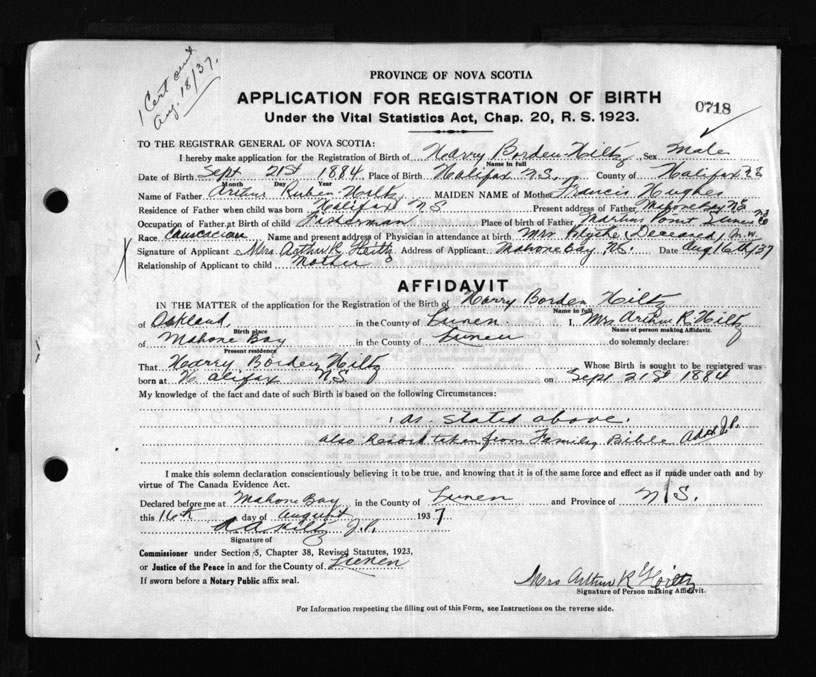 1 Cert sent
Aug. 18/37.
PROVINCE OF NOVA SCOTIA
APPLICATION FOR REGISTRATION OF BIRTH
0718
Under the Vital Statistics Act, Chap. 20, R. S. 1923.
TO THE REGISTRAR GENERAL OF NOVA SCOTIA:
I hereby make application for the Registration of Birth of Harry Borden Hiltz, Sex Male
Name in full
Date of Birth Sept 21st 1884 Place of Birth Halifax N.S. County of Halifax N.S
Month Day Year
Name of Father Arthur Ruben Hiltz MAIDEN NAME of Mother Francis Hughes
Residence of Father when child was born Halifax N S Present address of Father Mahone Bay N.S
Occupation of Father at Birth of child Fisherman Place of birth of Father Martins Point Lunen Co N.S
Race Caucasian Name and present address of Physician in attendance at birth Mrs Blythe (Deceased) M.W.
Signature of Applicant Mrs Arthur R Hiltz Address of Applicant Mahone Bay, N.S. Date Aug 16th/37
Relationship of Applicant to child Mother
AFFIDAVIT
IN THE MATTER of the application for the Registration of the Birth of Harry Borden Hiltz
Name in full
of Oakland, in the County of Lunen. I, Mrs Arthur R. Hiltz
Birth place Name of person making Affidavit.
of Mahone Bay in the County of Lunen do solemnly declare:
Present residence
That Harry Borden Hiltz Whose Birth is sought to be registered was
born at Halifax N S on Sept 21st 1884
My knowledge of the fact and date of such Birth is based on the following Circumstances:
as stated above.
also Record taken from Family Bible J.P.
I make this solemn declaration conscientiously believing it to be true, and knowing that it is of the same force and effect as if made under oath and by
virtue of The Canada Evidence Act.
Declared before me at Mahone Bay in the County of Lunen and Province of N.S.
this 16th day of August 1937
A A Hiltz J.P.
Signature of
Commissioner under Section 5, Chapter 38, Revised Statutes, 1923,
or Justice of the Peace in and for the County of Lunen
If sworn before a Notary Public affix seal.
Mrs Arthur R Hiltz
Signature of Person making Affidavit.
For Information respecting the filling out of this Form, see Instructions on the reverse side.